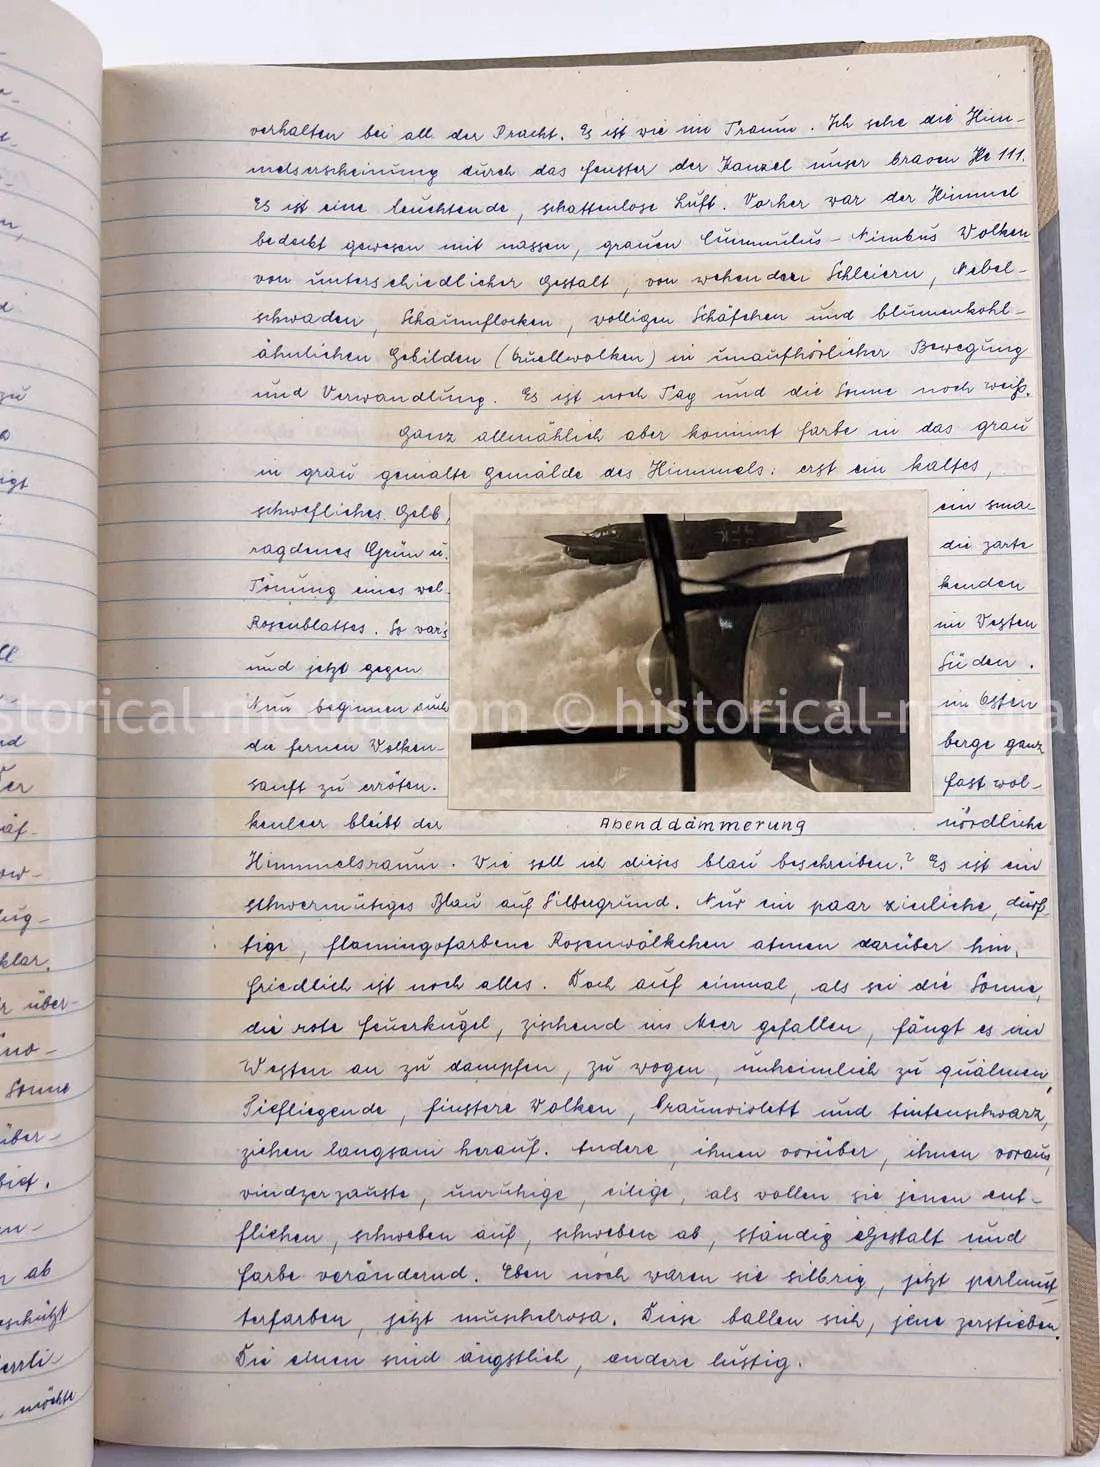 verhalten bei all der Pracht. Es ist wie im Traum. Ich sehe die Him-
melserscheinung durch das Fenster der Kanzel unser braven He 111.
Es ist eine leuchtende, schattenlose Luft. Vorher war der Himmel
bedeckt gewesen mit nassen, grauen Cummulus-Nimbus Wolken
von unterschiedlicher Gestalt, von wehenden Schleiern, Nebel-
schwaden, Schaumflocken, wolligen Schäfchen und blumenkohl-
ähnlichen Gebilden (Quellwolken) in unaufhörlicher Bewegung
und Verwandlung. Es ist noch Tag und die Sonne noch weiß.
Ganz allmählich aber kommt Farbe in das grau
in grau gemalte Gemälde des Himmels: erst ein kaltes,
schwefliches Gelb, ein sma-
ragdenes Grün u. die zarte
Tönung eines wel- kenden
Rosenblattes. So war's im Westen
und jetzt gegen Süden.
Nun beginnen auch im Osten
die fernen Wolken- berge ganz
sanft zu erröten. Fast wol-
kenleer bleibt der nördliche
Abenddämmerung
Himmelsraum. Wie soll ich dieses blau beschreiben? Es ist ein
schwermütiges Blau auf Silbergrund. Nur ein paar zierliche, dürf-
tige, flamingofarbene Rosenwölkchen atmen darüber hin.
Friedlich ist noch alles. Doch auf einmal, als sei die Sonne,
die rote Feuerkugel, zischend ins Meer gefallen, fängt es im
Westen an zu dampfen, zu wogen, unheimlich zu quälmen.
Tiefliegende, finstere Wolken, braunviolett und tintenschwarz,
ziehen langsam herauf. Andere, ihnen vorüber, ihnen voraus,
windzerzauste, unruhige, eilige, als wollen sie jenen ent-
fliehen, schweben auf, schweben ab, ständig Gestalt und
Farbe verändernd. Eben noch waren sie silbrig, jetzt perlmut-
terfarben, jetzt muschelrosa. Diese ballen sich, jene zerstieben.
Die einen sind ängstlich, andere lustig.
historical-media.com © historical-media.com